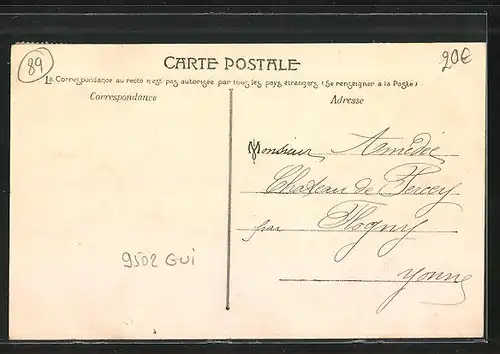 89
20€
CARTE POSTALE
La Correspondance au recto n'est pas autorisée par tous les pays étrangers (Se renseigner à la Poste)
Correspondance
Adresse
Monsieur Amédée
Chateau de Percey
par Flogny
Yonne
9502 GUi